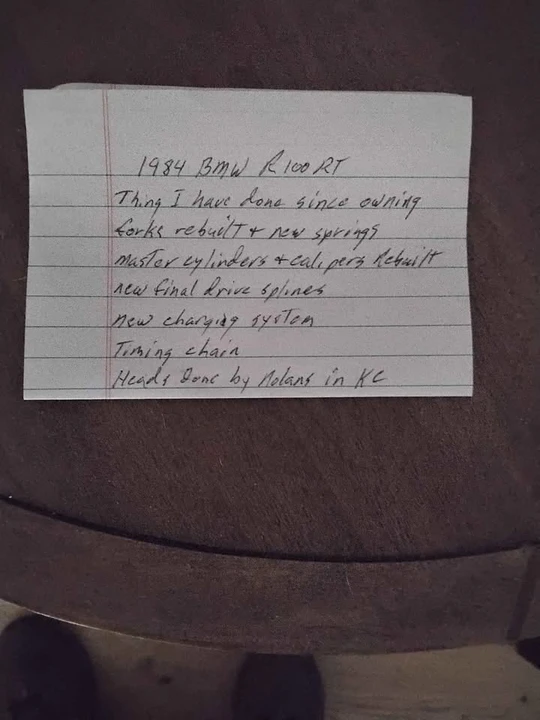 1984 BMW R100RT
Thing I have done since owning
forks rebuilt + new springs
master cylinders + calipers Rebuilt
new final drive splines
new charging system
Timing chain
Heads Done by Nolans in KC